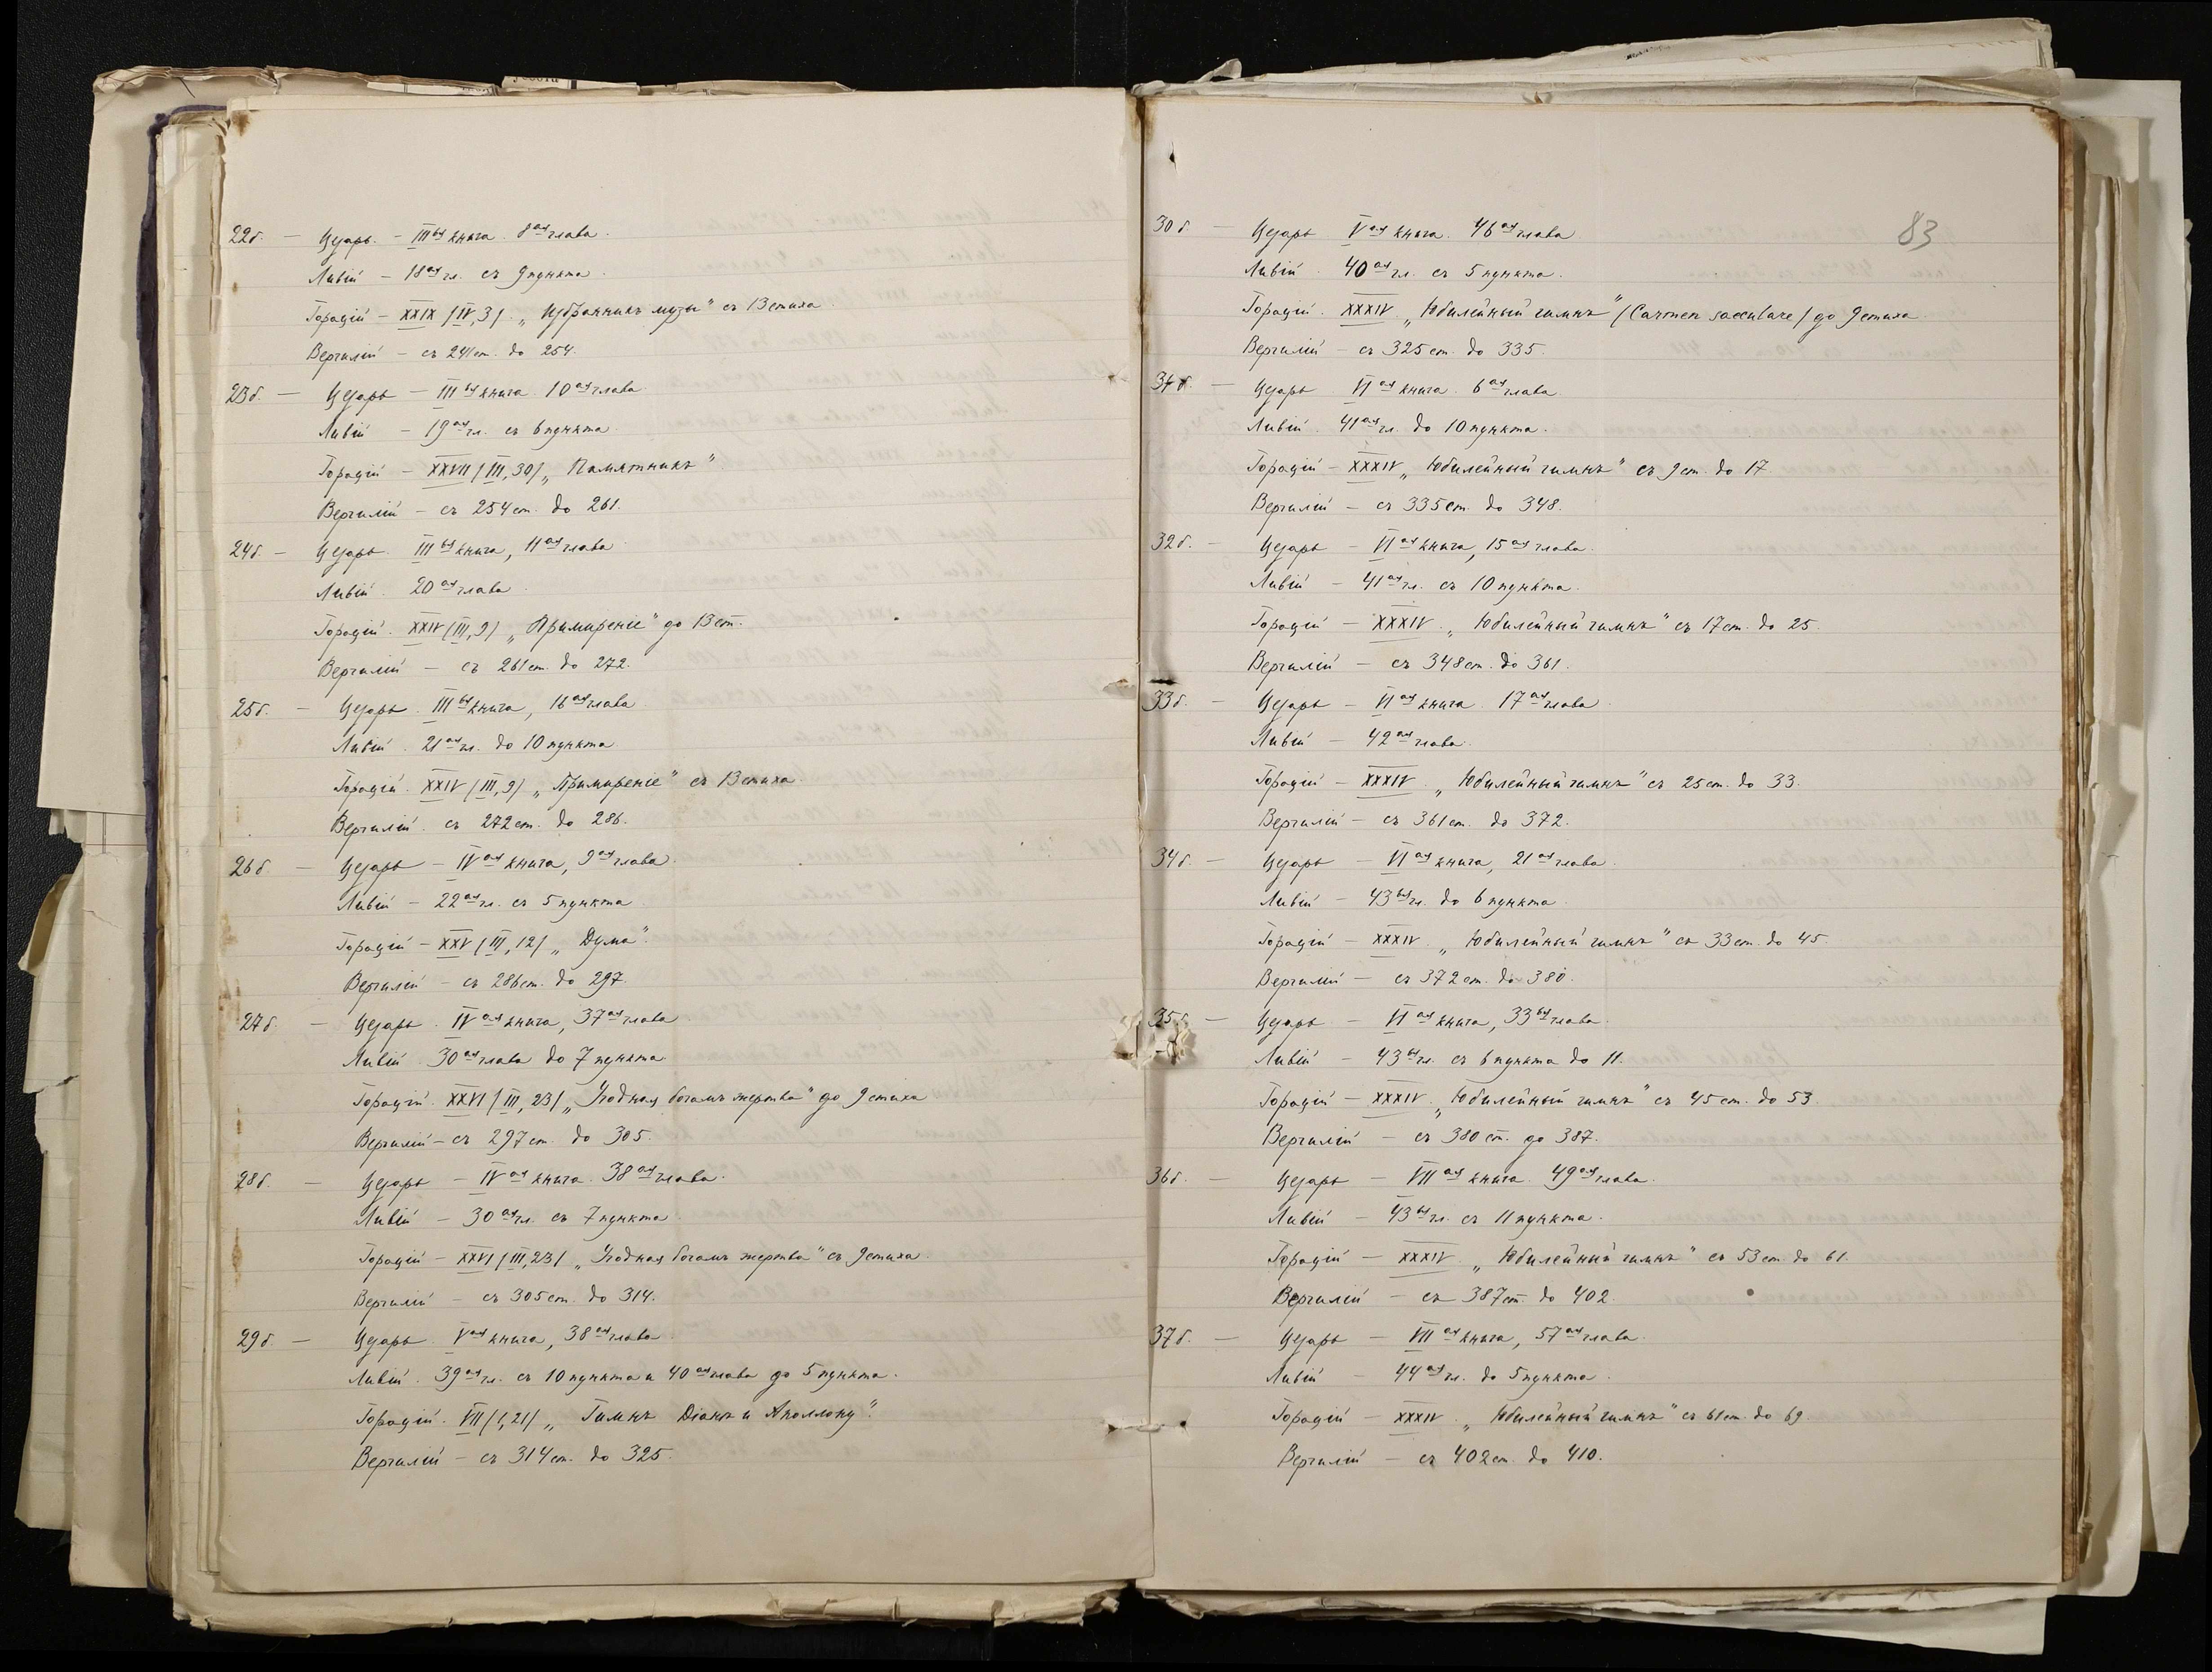 22б. — Цезарь. — III ья книга. 8 ая глава.
Ливій — 18 ая гл. съ 9 пункта.
Горацій — XXIX /IV, 3/. „Избранникъ музы" съ 13 стиха.
Вергилій — съ 241 ст. до 254.
23б. — Цезарь — III ья книга. 10 ая глава.
Ливій — 19 ая гл. съ 6 пункта.
Горацій — XXVII /III, 30/ „Памятникъ"
Вергилій — съ 254 ст. до 261.
24б. — Цезарь. III ья книга, 11 ая глава.
Ливій. 20 ая глава.
Горацій. XXIV /III, 9/ „Примиреніе" до 13 ст.
Вергилій — съ 261 ст. до 272.
25б. — Цезарь. III ья книга, 16 ая глава.
Ливій. 21 ая гл. до 10 пункта.
Горацій. XXIV /III, 9/ „Примиреніе" съ 13 стиха.
Вергилій. съ 272 ст. до 286.
26б. — Цезарь — IV ая книга, 9 ая глава.
Ливій — 22 ая гл. съ 5 пункта.
Горацій — XXV /III, 12/ „Дума".
Вергилій — съ 286 ст. до 297.
27б. — Цезарь. IV ая книга, 37 ая глава.
Ливій. 30 ая глава до 7 пункта.
Горацій. XXVI /III, 23/ „Угодная богамъ жертва" до 9 стиха
Вергилій — съ 297 ст. до 305.
28б. — Цезарь — IV ая книга. 38 ая глава.
Ливій — 30 ая гл. съ 7 пункта.
Горацій — XXVI /III, 23/ „Угодная богамъ жертва" съ 9 стиха.
Вергилій — съ 305 ст. до 314.
29б. — Цезарь. V ая книга, 38 ая глава.
Ливій. 39 ая гл. съ 10 пункта и 40 ая глава до 5 пункта.
Горацій. VII /I, 21/ „Гимнъ Діанѣ и Аполлону".
Вергилій — съ 314 ст. до 325.
83
30б — Цезарь V ая книга. 46 ая глава
Ливій. 40 ая гл. съ 5 пункта.
Горацій. XXXIV. „Юбилейный гимнъ" /Carmen saeculare/ до 9 стиха.
Вергилій — съ 325 ст. до 335.
31б. — Цезарь VI ая книга. 6 ая глава.
Ливій. 41 ая гл. до 10 пункта.
Горацій — XXXIV „Юбилейный гимнъ" съ 9 ст. до 17
Вергилій — съ 335 ст. до 348.
32б. — Цезарь — VI ая книга, 15 ая глава.
Ливій — 41 ая гл. съ 10 пункта.
Горацій — XXXIV. „Юбилейный гимнъ" съ 17 ст. до 25.
Вергилій — съ 348 ст. до 361.
33б. — Цезарь — VI ая книга. 17 ая глава.
Ливій — 42 ая глава.
Горацій — XXXIV. „Юбилейный гимнъ" съ 25 ст. до 33.
Вергилій — съ 361 ст. до 372.
34б. — Цезарь — VI ая книга, 21 ая глава.
Ливій — 43 ья гл. до 6 пункта.
Горацій — XXXIV. „Юбилейный гимнъ" съ 33 ст. до 45.
Вергилій — съ 372 ст. до 380.
35б. — Цезарь — VI ая книга, 33 ья глава.
Ливій — 43 ья гл. съ 6 пункта до 11.
Горацій — XXXIV. „Юбилейный гимнъ" съ 45 ст. до 53.
Вергилій — съ 380 ст. до 387.
36б. — Цезарь — VII ая книга. 49 ая глава.
Ливій — 43 ья гл. съ 11 пункта.
Горацій — XXXIV. „Юбилейный гимнъ" съ 53 ст. до 61.
Вергилій — съ 387 ст. до 402.
37б. — Цезарь — VII ая книга, 57 ая глава.
Ливій — 44 ая гл. до 5 пункта.
Горацій — XXXIV. „Юбилейный гимнъ" съ 61 ст. до 69.
Вергилій — съ 402 ст. до 410.